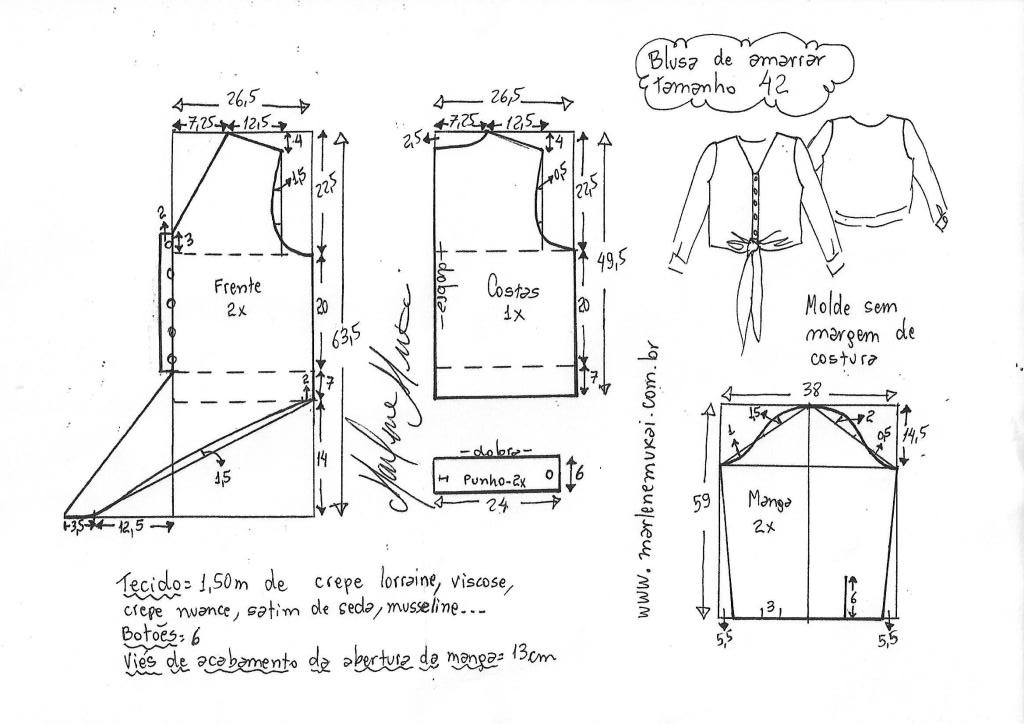 Blusa de amarrar
tamanho 42
26,5
7,25 12,5
4
1,5
22,5
2
3
Frente
2x
20
63,5
2
7
1,5
14
3,5 12,5
26,5
7,25 12,5
2,5
4
0,5
22,5
49,5
-dobra-
Costas
1x
20
7
-dobra-
Punho-2x
6
24
Molde sem
margem de
costura
www.marlenemukai.com.br
38
1,5
2
1
0,5
14,5
59
Manga
2x
6
3
5,5
5,5
Tecido= 1,50m de crepe lorraine, viscose,
crepe nuance, satim de seda, musseline...
Botões= 6
Viés de acabamento da abertura da manga= 13cm